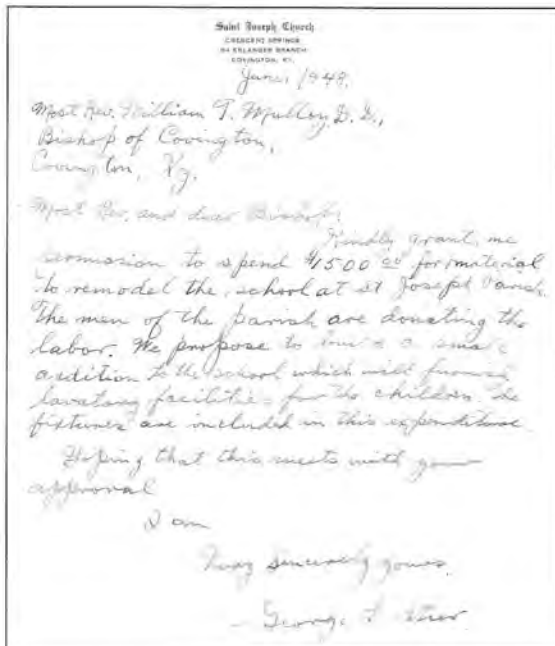 Saint Joseph Church
CRESCENT SPRINGS
ERLANGER BRANCH
COVINGTON, KY.
June, 1948.
Most Rev. William T. Mulloy, D. D.,
Bishop of Covington,
Covington, Ky.
Most Rev. and dear Bishop:
Kindly grant me
permission to spend $1500 00 for material
to remodel the school at St Joseph Parish.
The men of the parish are donating the
labor. We propose to build a small
addition to the school which will furnish
lavatory facilities for the children. The
fixtures are included in this expenditure
Hoping that this meets with your
approval
I am
Very sincerely yours,
George